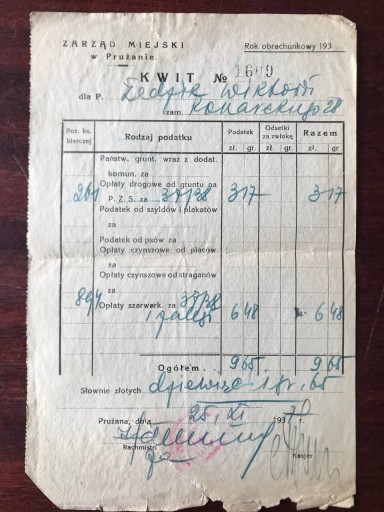 ZARZĄD MIEJSKI
w Prużanie.
Rok obrachunkowy 193
KWIT № 1609
dla P.
zam. Konarskiego 28
Poz. ks. bierczej Rodzaj podatku Podatek Odsetki za zwłokę Razem
zł. gr. zł. gr. zł. gr.
Państw. grunt. wraz z dodat.
komun. za
Opłaty drogowe od gruntu na
261 P. Z. S. za 37/38 3 17 3 17
Podatek od szyldów i plakatów
za
Podatek od psów za
Opłaty czynszowe od placów
za
Opłaty czynszowe od straganów
za
894 Opłaty szarwark. za 37/38
i zaległ 6 48 6 48
Ogółem 9 65 9 65
Słownie złotych dziewięć i gr. 65
Prużana, dnia 25. XI 1937 r.
Rachmistrz
Kasjer